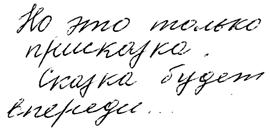 Но это только
присказка.
Сказка будет
впереди...